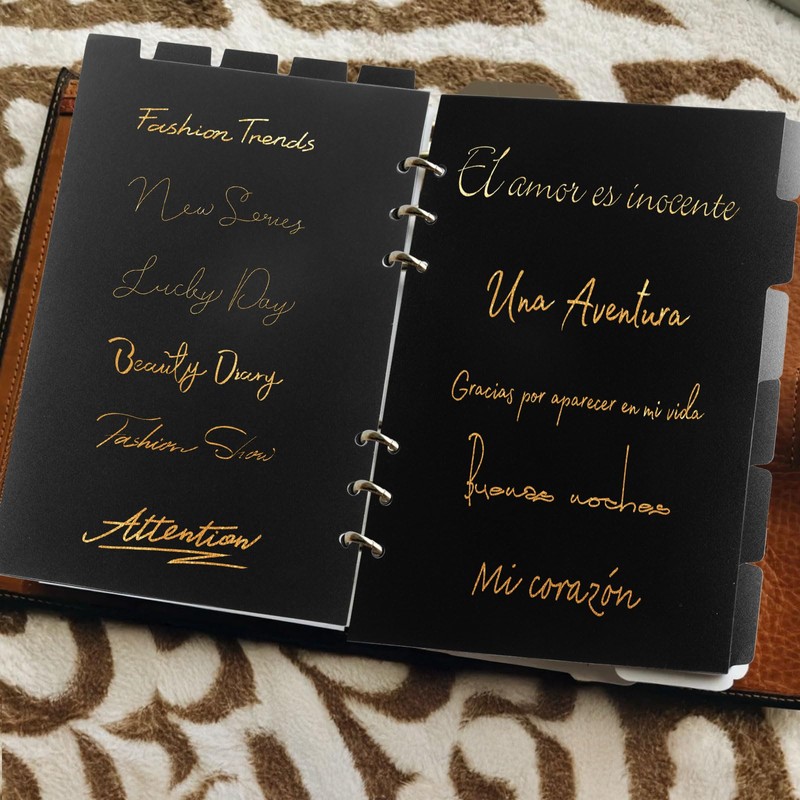 Fashion Trends
New Series
Lucky Day
Beauty Diary
Fashion Show
Attention
El amor es inocente
Una Aventura
Gracias por aparecer en mi vida
Buenas noches
Mi corazón